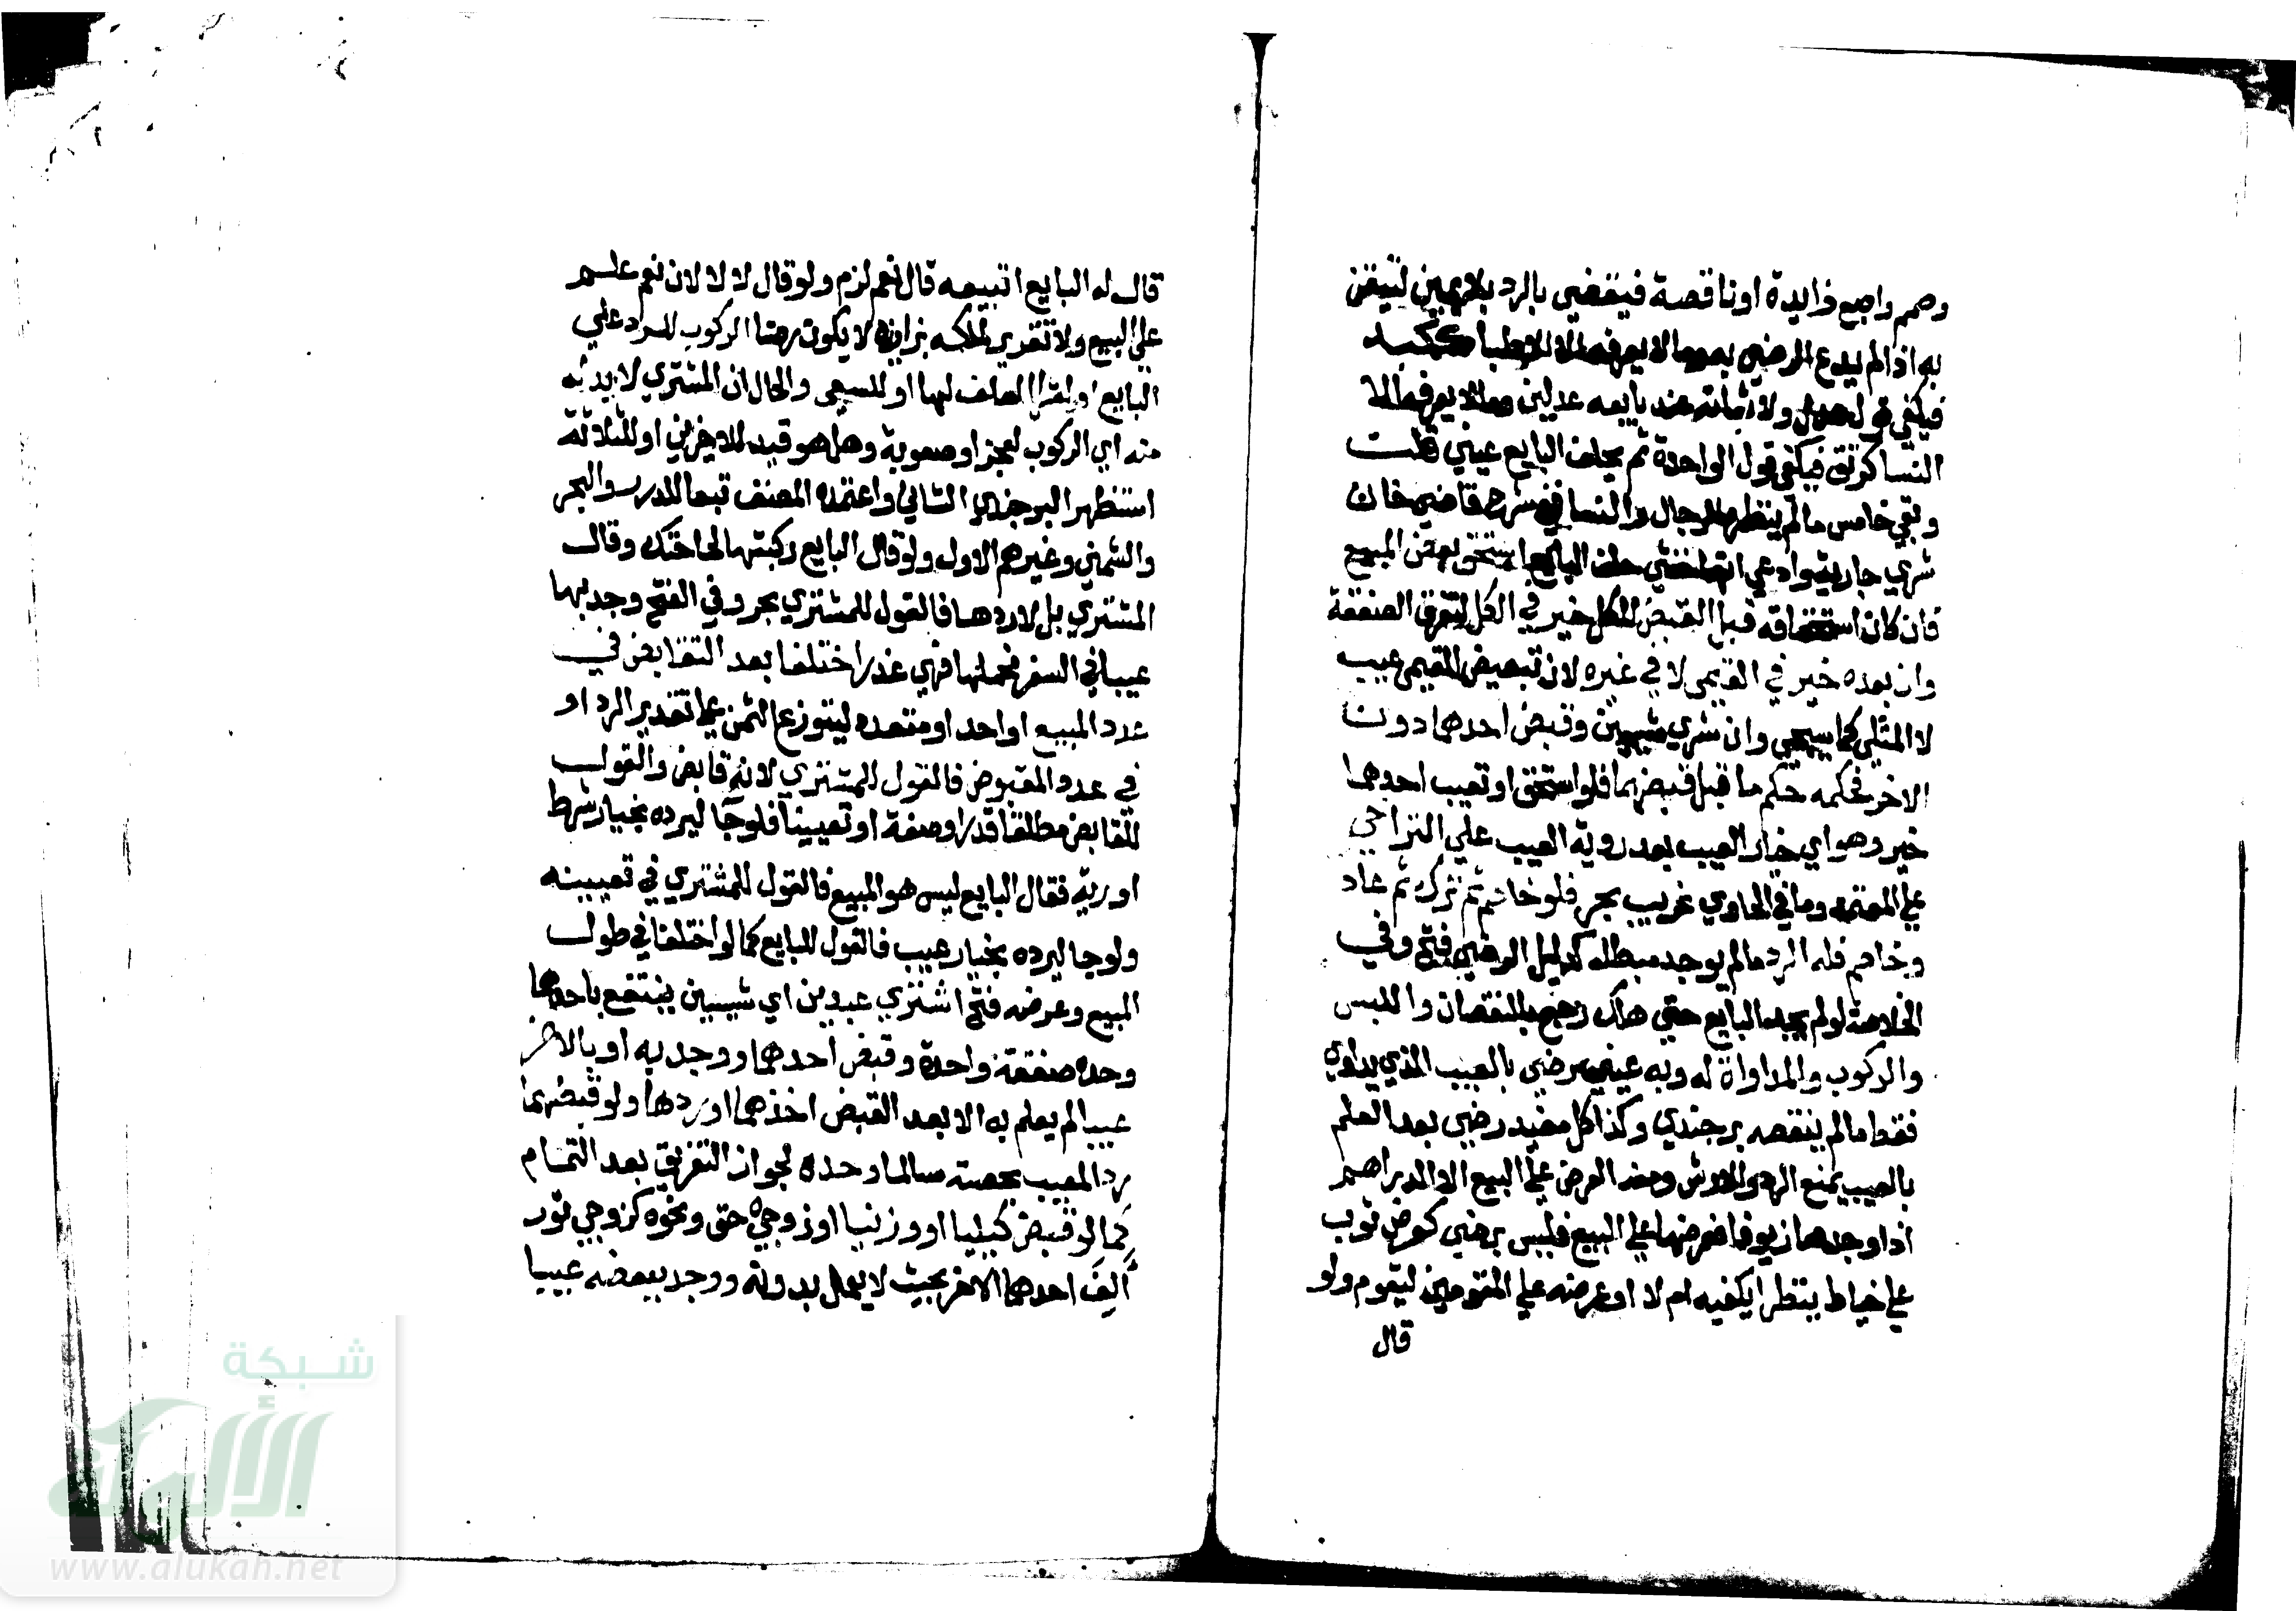 وصمم واصبع زايدة او ناقصة فيقضي بالرد بلا يمين لتيقن
به اذا لم يدع الرضي به وما لا يعرفه الا الاطبا ككبد
فيكفي قول عدل ولاثباته عند بايعه عدلين وما لا يعرفه الا
النسا كرتق فيكفي قول الواحدة ثم يحلف البايع عيني قلت
وبقي خامس ما لا ينظره الرجال والنسا ففي شرح قاضيخان
شري جارية وادعي انها خنثي حلف البايع استحق بعض المبيع
فان كان استحقاقه قبل القبض للكل خير في الكل لتفرق الصفقة
وان بعده خير في القيمي لا في غيره لان تبعيض القيمي عيب
لا المثلي كما سيجي وان شري شيئين وقبض احدهما دون
الاخر فحكمه حكم ما قبل قبضهما فلو استحق او تعيب احدهما
خير وهو اي خيار العيب بعد روية العيب علي التراخي
علي المعتمد وما في الحاوي غريب بحر فلو خاصم ثم ترك ثم عاد
وخاصم فله الرد ما لم يوجد مبطله كدليل الرضي فتح وفي
الخلاصة لو لم يجد البايع حتي هلك رجع بالنقصان واللبس
والركوب والمداواة له وبه عيني رضي بالعيب الذي يداويه
فقط ما لم ينقصه برجندي وكذا كل مفيد رضي بعد العلم
بالعيب يمنع الرد والارش ومنه العرض علي البيع الا الدراهم
اذا وجدها زيوفا فعرضها علي البيع فليس برضي كعرض ثوب
علي خياط ينظر ايكفيه ام لا او عرضه علي المقومين ليقوم ولو
قال
قال له البايع اتبيعه قال نعم لزم ولو قال لا لا لان نعم عرض
علي البيع ولا تقرير لملكه بزازيه لا يكون رضا الركوب للرد علي
البايع او لشرا العلف لها او للسقي والحال ان المشتري لا بد له
منه اي الركوب لعجز او صعوبة وهل هو قيد للاخيرين او للثلاثة
استظهر البرجندي الثاني واعتمده المصنف تبعا للدرر والبحر
والشمني وغيرهم الاول ولو قال البايع ركبتها لحاجتك وقال
المشتري بل لاردها فالقول للمشتري بحر وفي الفتح وجد بها
عيبا في السفر فحملها فهي عذر اختلفا بعد التقابض في
عدد المبيع اواحد او متعدد ليتوزع الثمن علي تقدير الرد او
في عدد المقبوض فالقول للمشتري لانه قابض والقول
للقابض مطلقا قدرا وصفة او تعيينا فلو جا ليرده بخيار شرط
او رية فقال البايع ليس هو المبيع فالقول للمشتري في تعيينه
ولو جا ليرده بخيار عيب فالقول للبايع كما لو اختلفا في طول
المبيع وعرضه فتح اشتري عبدين اي شيين ينتفع باحدهما
وحده صفقة واحدة وقبض احدهما ووجد به او بالاخر
عيبا لم يعلم به الا بعد القبض اخذهما او ردهما ولو قبضهما
رد المعيب بحصته سالما وحده لجواز التفريق بعد التمام
كما لو قبض كيليا او وزنيا او زوجي خف ونحوه كزوجي ثور
ألِفَ احدهما الاخر بحيث لا يعمل بدونه ووجد ببعضه عيبا
شبكة
الألوكة
www.alukah.net